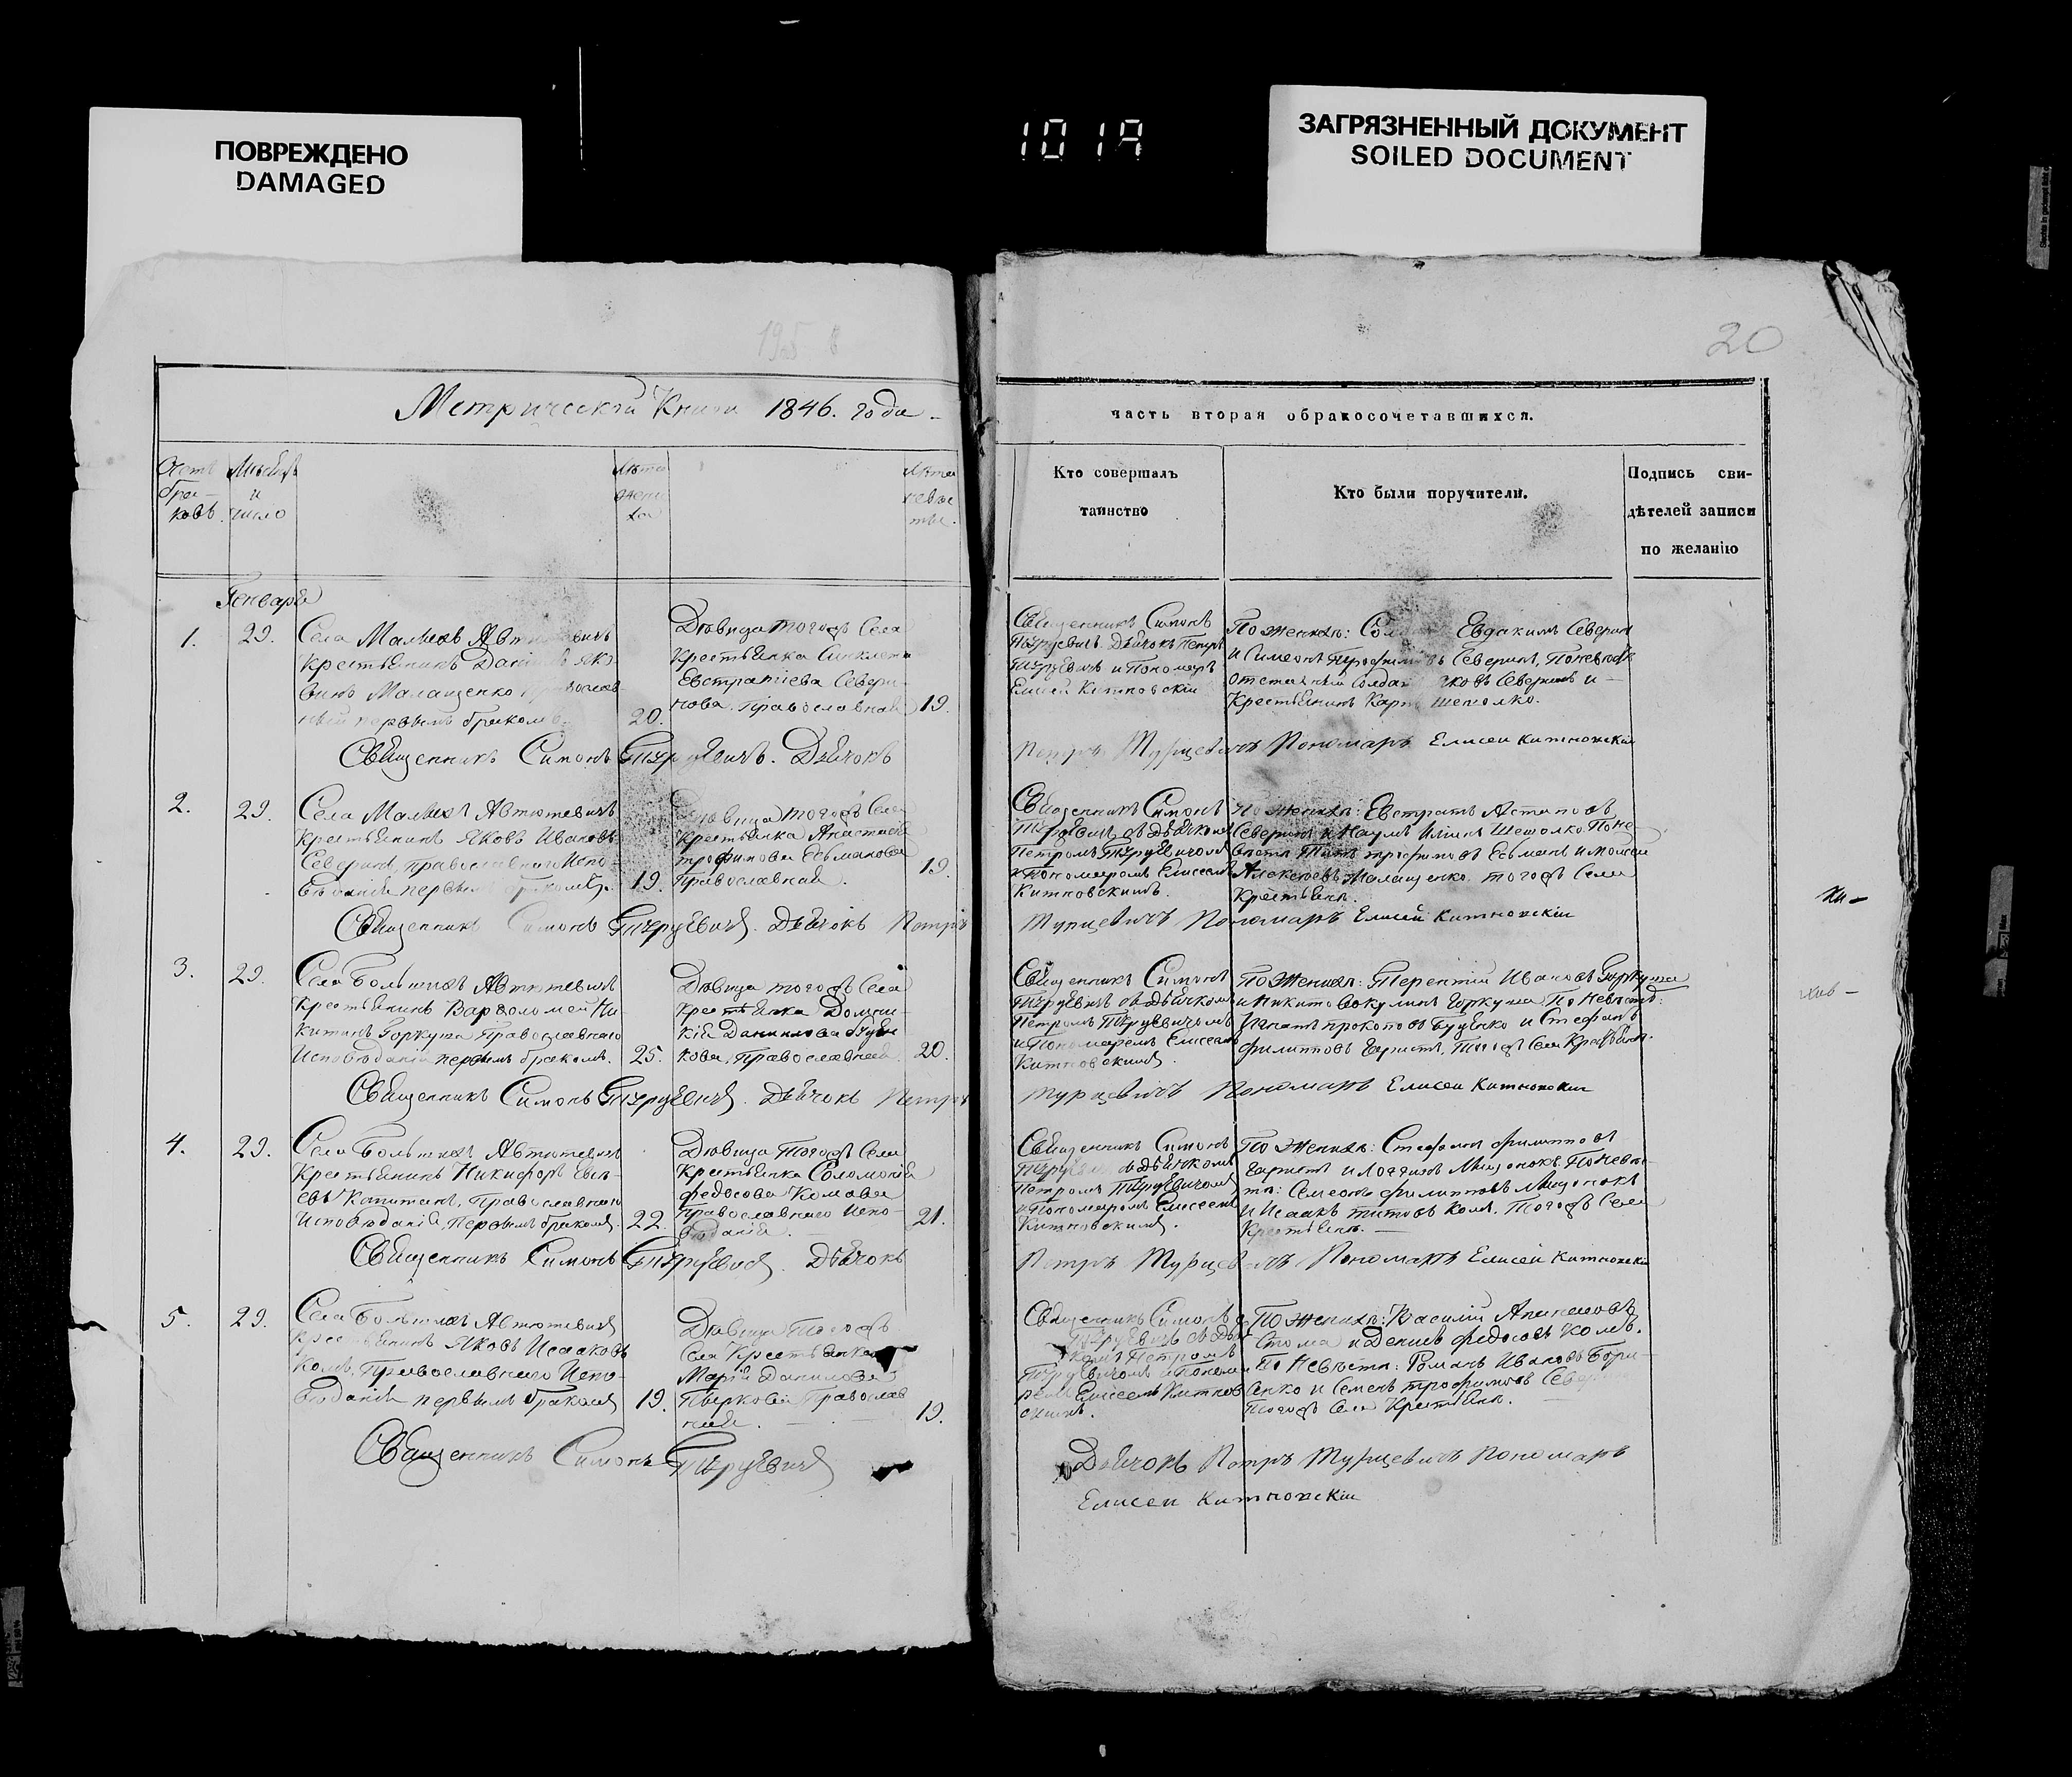 ПОВРЕЖДЕНО
DAMAGED
1019
ЗАГРЯЗНЕННЫЙ ДОКУМЕНТ
SOILED DOCUMENT
20
Метрической Книги 1846. года
часть вторая обракосочетавшихся.
Счетъ браковъ.
Мѣсяцъ и число
Лѣта жениха
Лѣта невѣсты.
Кто совершалъ таинство
Кто были поручители.
Подпись свидѣтелей записи по желанію
Генваря
1.
29.
Села Малыхъ Автютевичъ
Крестьянинъ Даніилъ Яко-
влевъ Малащенко
первымъ бракомъ.
20.
Дѣвица того жъ Села
Крестьянка Синклета
Евстратіева Севери-
нова. Православная
19.
Священникъ Симонъ
Турцевичъ Дьячокъ Петръ
Турцевичъ и Пономарь
Елисей Китновскій
По женихѣ: Евдакимъ Северинъ
и Симеонъ Трофимовъ Северинъ, По невѣстѣ
отставный Солдатъ Яковъ Северинъ и
Крестьянинъ Карпъ Шеполко.
Священникъ Симонъ Турцевичъ. Дьячокъ
Петръ Турцевичъ Пономарь Елисей Китновскій
2.
29.
Села Малыхъ Автютевичъ
Крестьянинъ Яковъ Ивановъ
Северинъ, православнаго Испо-
вѣданія первымъ бракомъ.
19.
Дѣвица того жъ Села
Крестьянка Анастасія
Трофимова Есьманова
Православная.
19.
Священникъ Симонъ
Турцевичъ съ Дьячкомъ
Петромъ Турцевичомъ
и Пономаремъ Елисеемъ
Китновскимъ.
По женихѣ: Евстратъ Астаповъ
Северинъ и Наумъ Шеполко По не-
вѣстѣ Титъ Трофимовъ Есьманъ и Мойсей
Алексѣевъ Малащенко того жъ Села
Крестьяне.
Священникъ Симонъ Турцевичъ. Дьячокъ Петръ
Турцевичъ Пономарь Елисей Китновскій
3.
29.
Села Большихъ Автютевичъ
Крестьянинъ Варфоломей Ни-
китинъ Горкуша Православнаго
Исповѣданія первымъ бракомъ.
25.
Дѣвица того жъ Села
Крестьянка Домни-
кія Данилова
кова, Православная.
20.
Священникъ Симонъ
Турцевичъ съ Дьячкомъ
Петромъ Турцевичомъ
и Пономаремъ Елисеемъ
Китновскимъ.
По Женихѣ: Терентій Ивановъ Горкуша
и Никита Вакулинъ Горкуша По Невѣстѣ:
Игнатъ Прокоповъ Буденко и Стефанъ
Филипповъ того жъ Села Крестьяне.
Священникъ Симонъ Турцевичъ. Дьячокъ Петръ
Турцевичъ Пономарь Елисей Китновскій
4.
29.
Села Большихъ Автютевичъ
Крестьянинъ Никифоръ
Капитанъ, Православнаго
Исповѣданія, Первымъ бракомъ.
22.
Дѣвица Того жъ Села
Крестьянка Соломонія
Федосова Комова
Православнаго Испо-
вѣданія.
21.
Священникъ Симонъ
Турцевичъ съ Дьячкомъ
Петромъ Турцевичомъ
и Пономаремъ Елисеемъ
Китновскимъ.
По Женихѣ: Стефанъ Филипповъ
и Логгинъ Мицонокъ По невѣс-
тѣ: Семеонъ Филипповъ Мицонокъ
и Исаакъ Титовъ Комъ. Того жъ Села
Крестьяне.
Священникъ Симонъ Турцевичъ. Дьячокъ
Петръ Турцевичъ Пономарь Елисей Китновскій
5.
29.
Села Большихъ Автютевичъ
Крестьянинъ Яковъ Исааковъ
Комъ, Православнаго Испо-
вѣданія первымъ бракомъ
19.
Дѣвица Того жъ
Села Крестьянка
Марія Данилова
Цыркова Православ
ная.
19.
Священникъ Симонъ
Турцевичъ съ Дьяч
комъ Петромъ
Турцевичомъ и Понома
ремъ Елисеемъ Китнов
скимъ.
По Женихѣ: Василій
Стома и Денисъ Федосовъ Комъ.
По Невѣстѣ: Романъ Ивановъ Бори-
сенко и Семенъ Трофимовъ
того жъ Села Крестьяне.
Священникъ Симонъ Турцевичъ
Дьячокъ Петръ Турцевичъ Пономарь
Елисей Китновскій